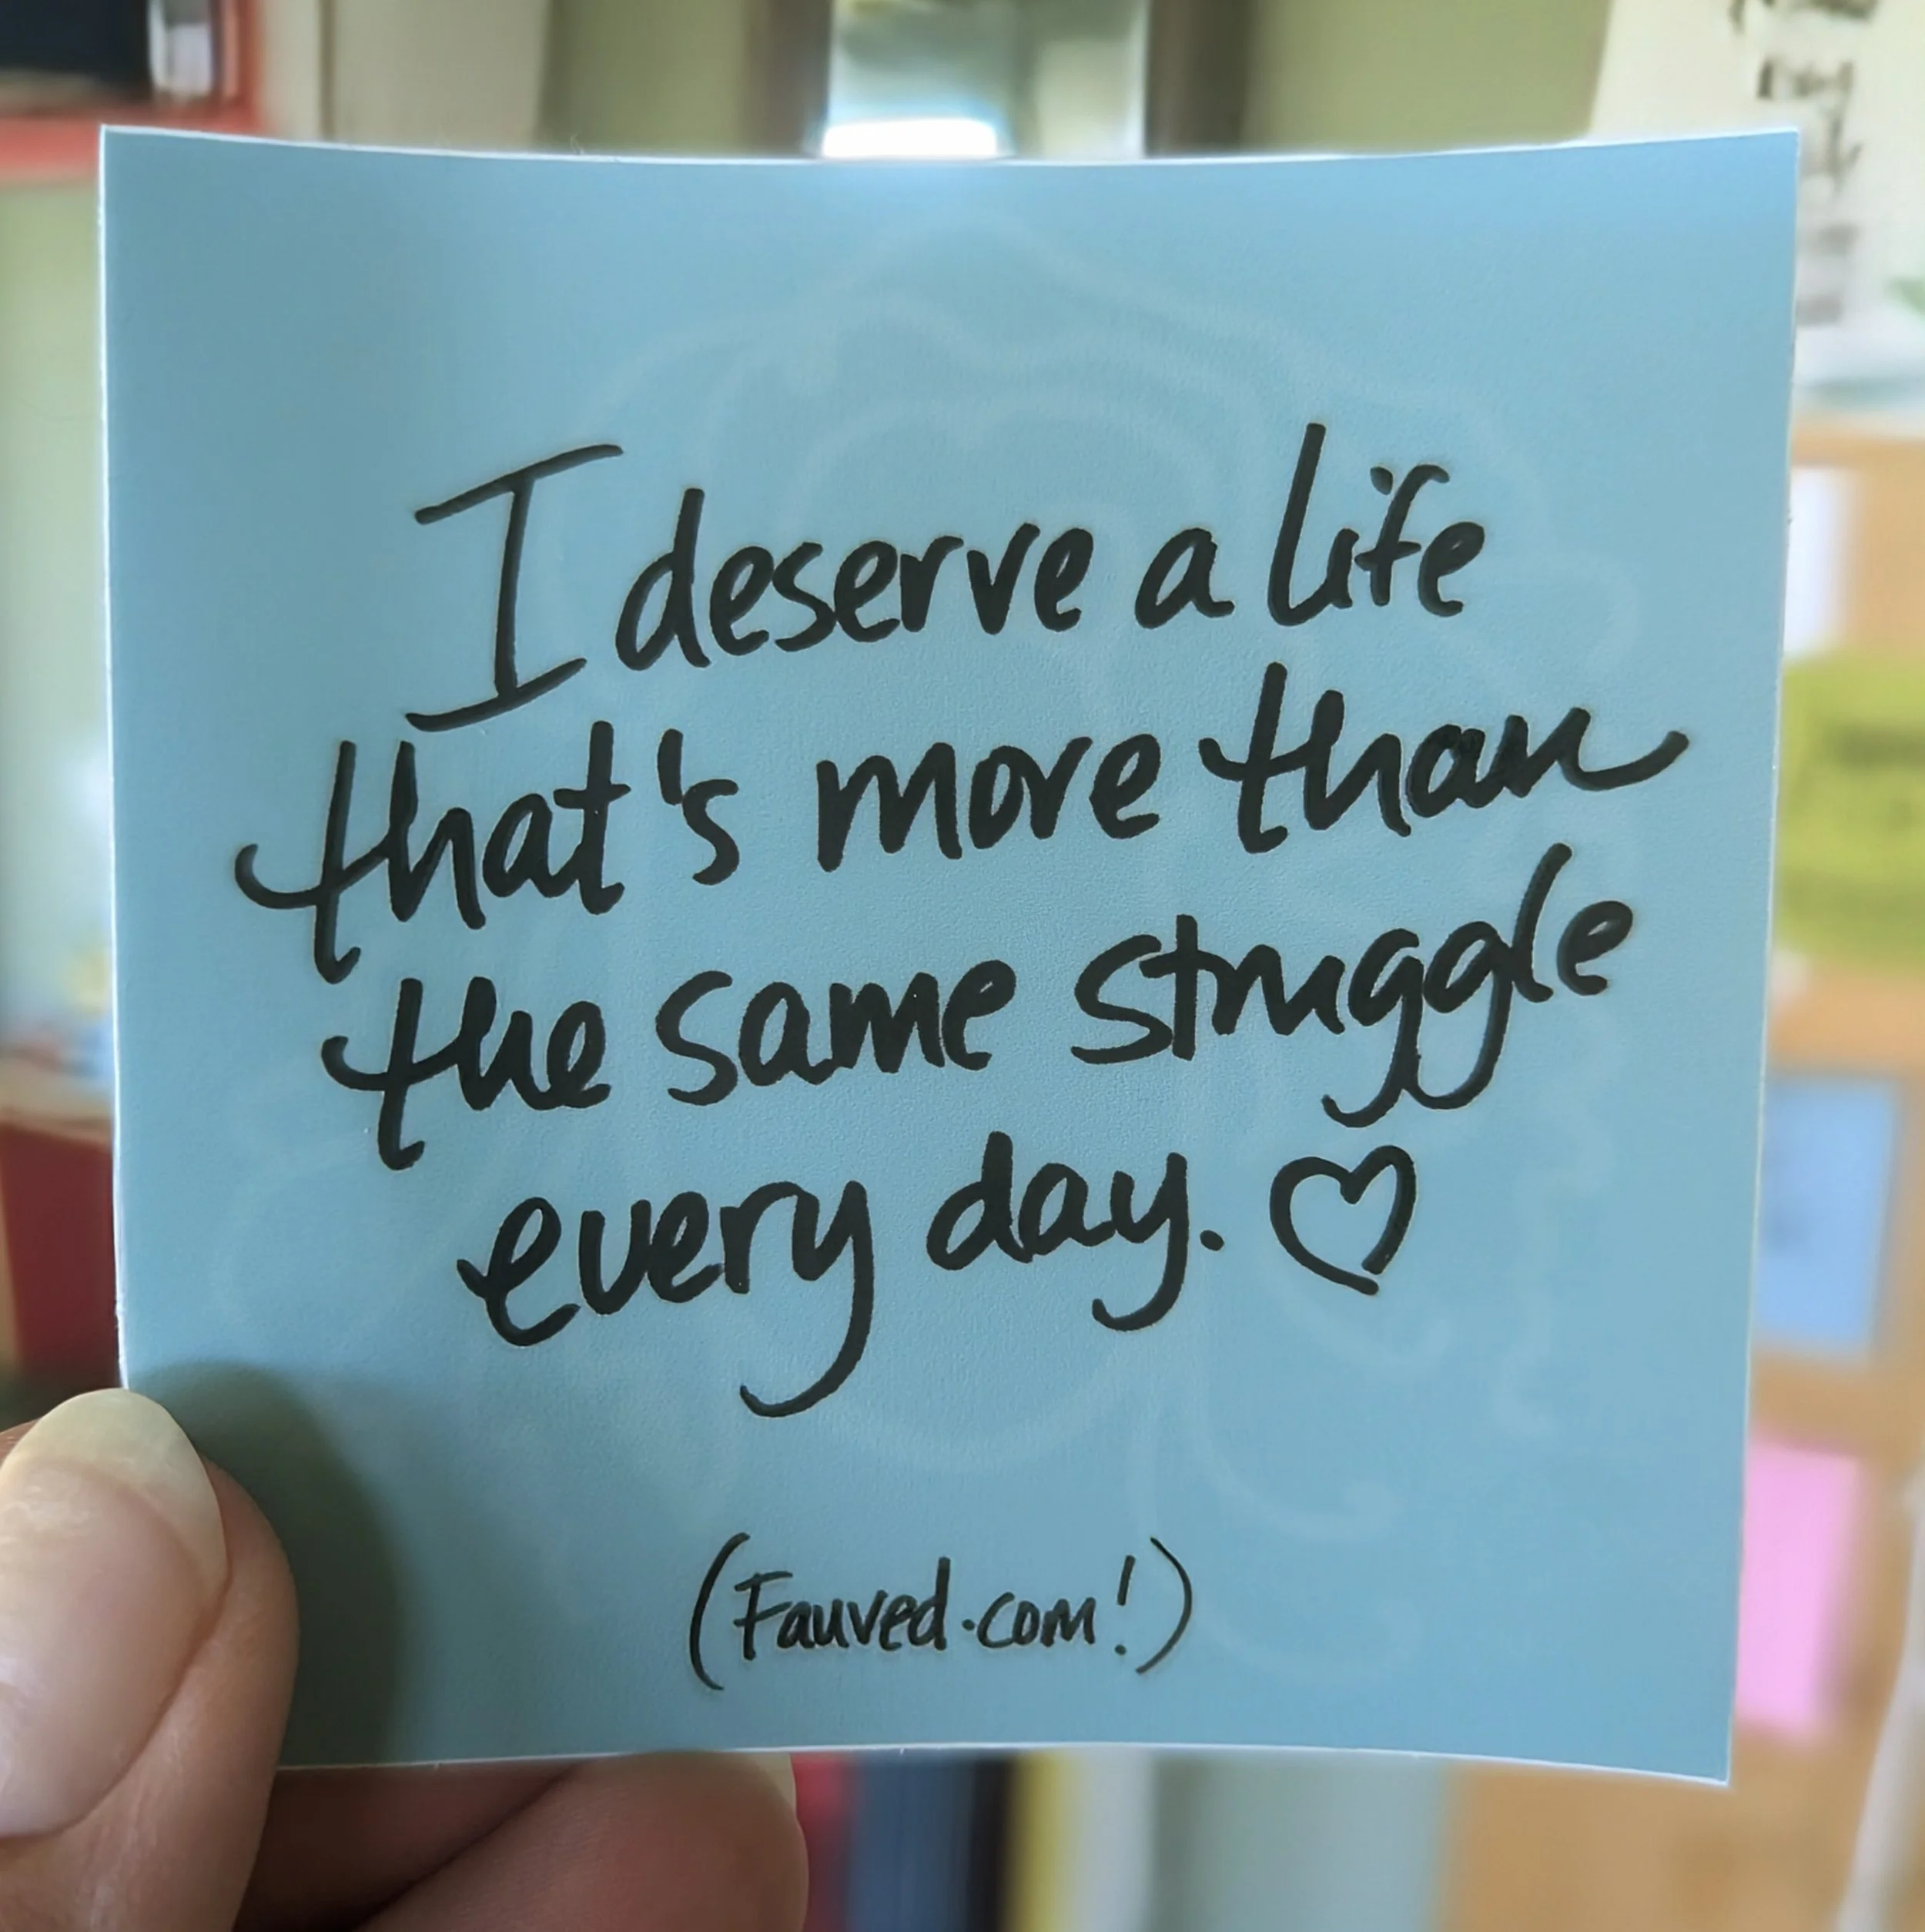 I deserve a life
that's more than
the same struggle
every day. ♡
(Fauved.com!)